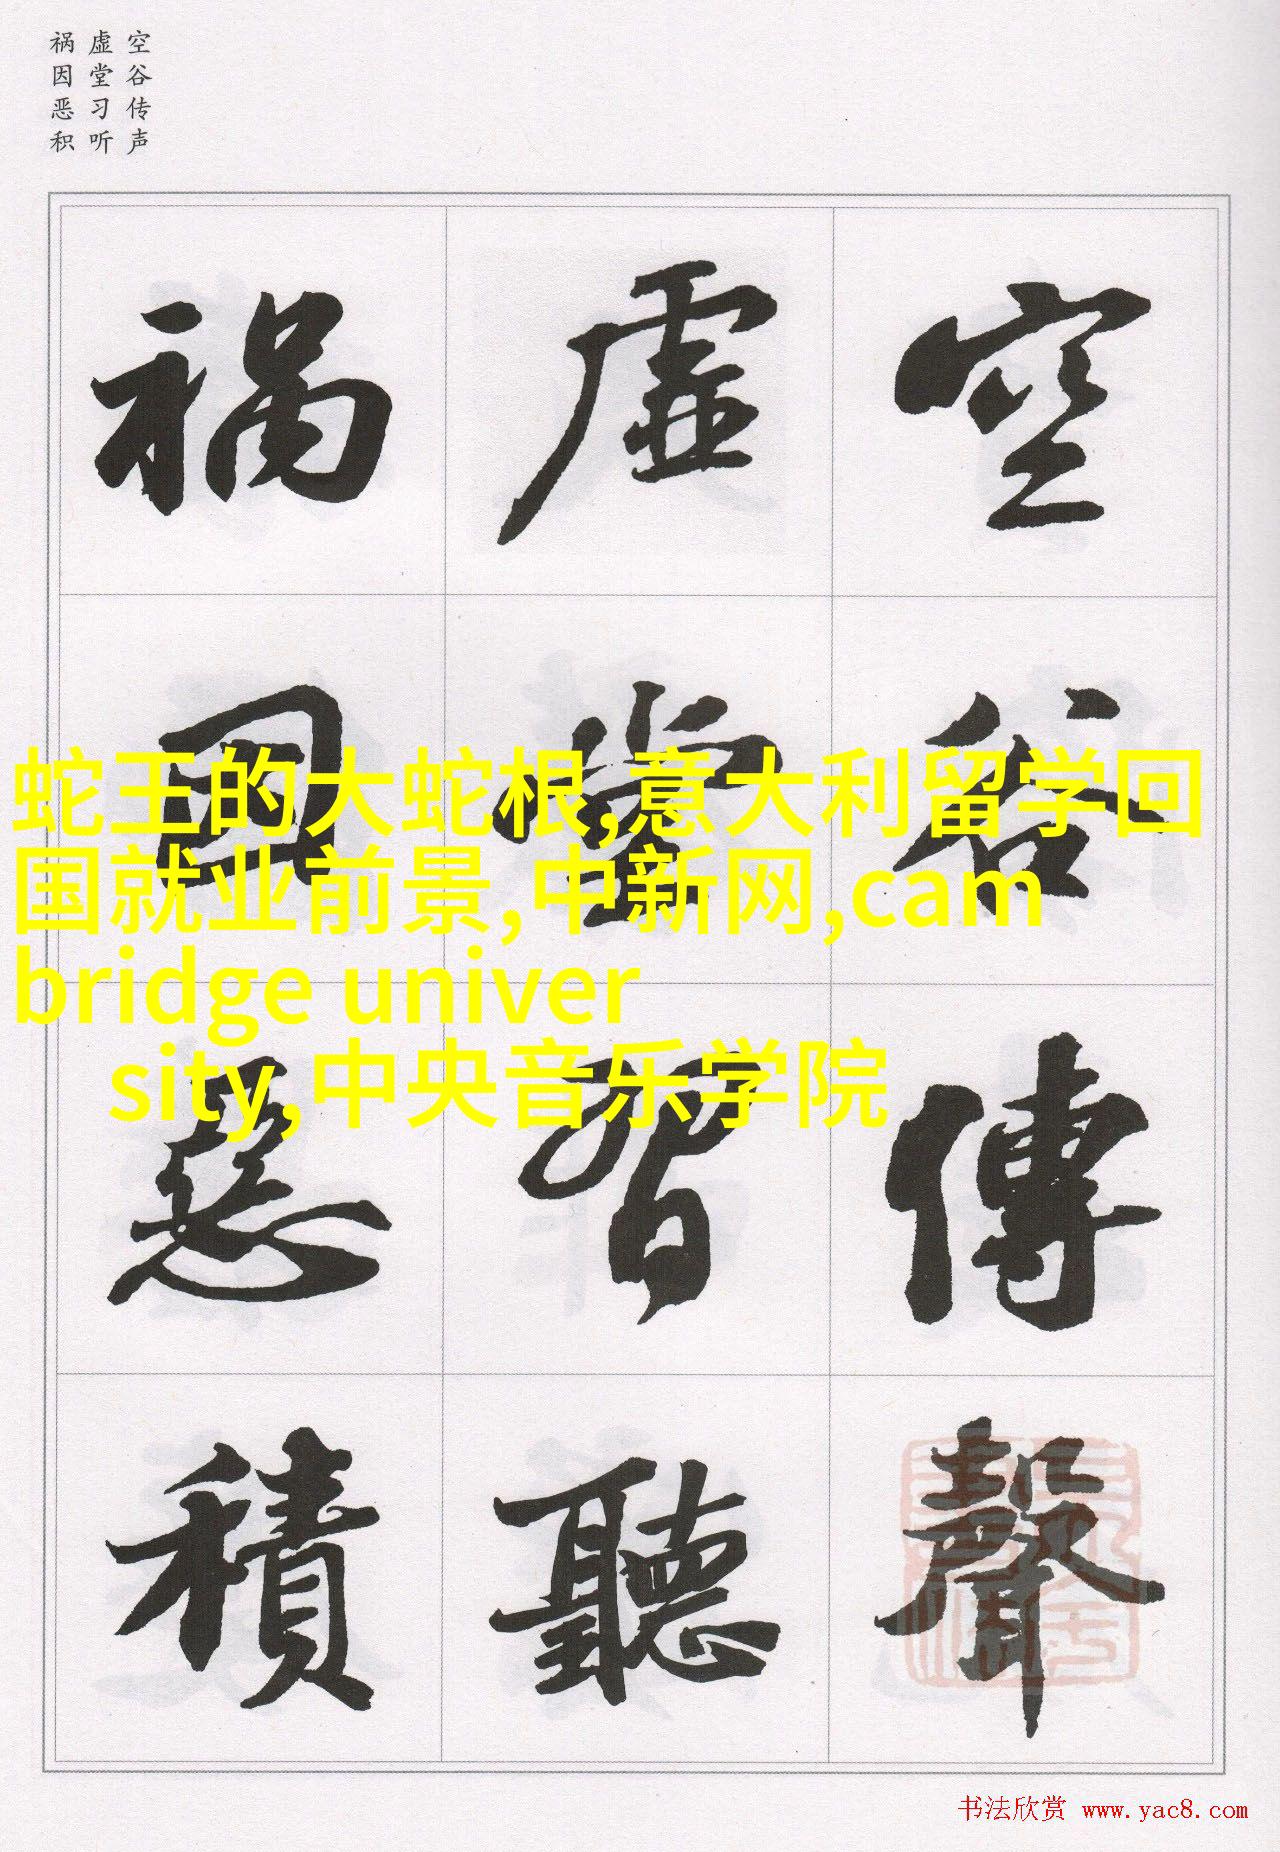 空谷传声
虚堂习听
祸因恶积
空谷傳聲
虚堂習聽
禍因惡積
蛇王的大蛇根,意大利留学回
国就业前景,中新网,cam
bridge univer
sity,中央音乐学院
书法欣赏 www.yac8.com